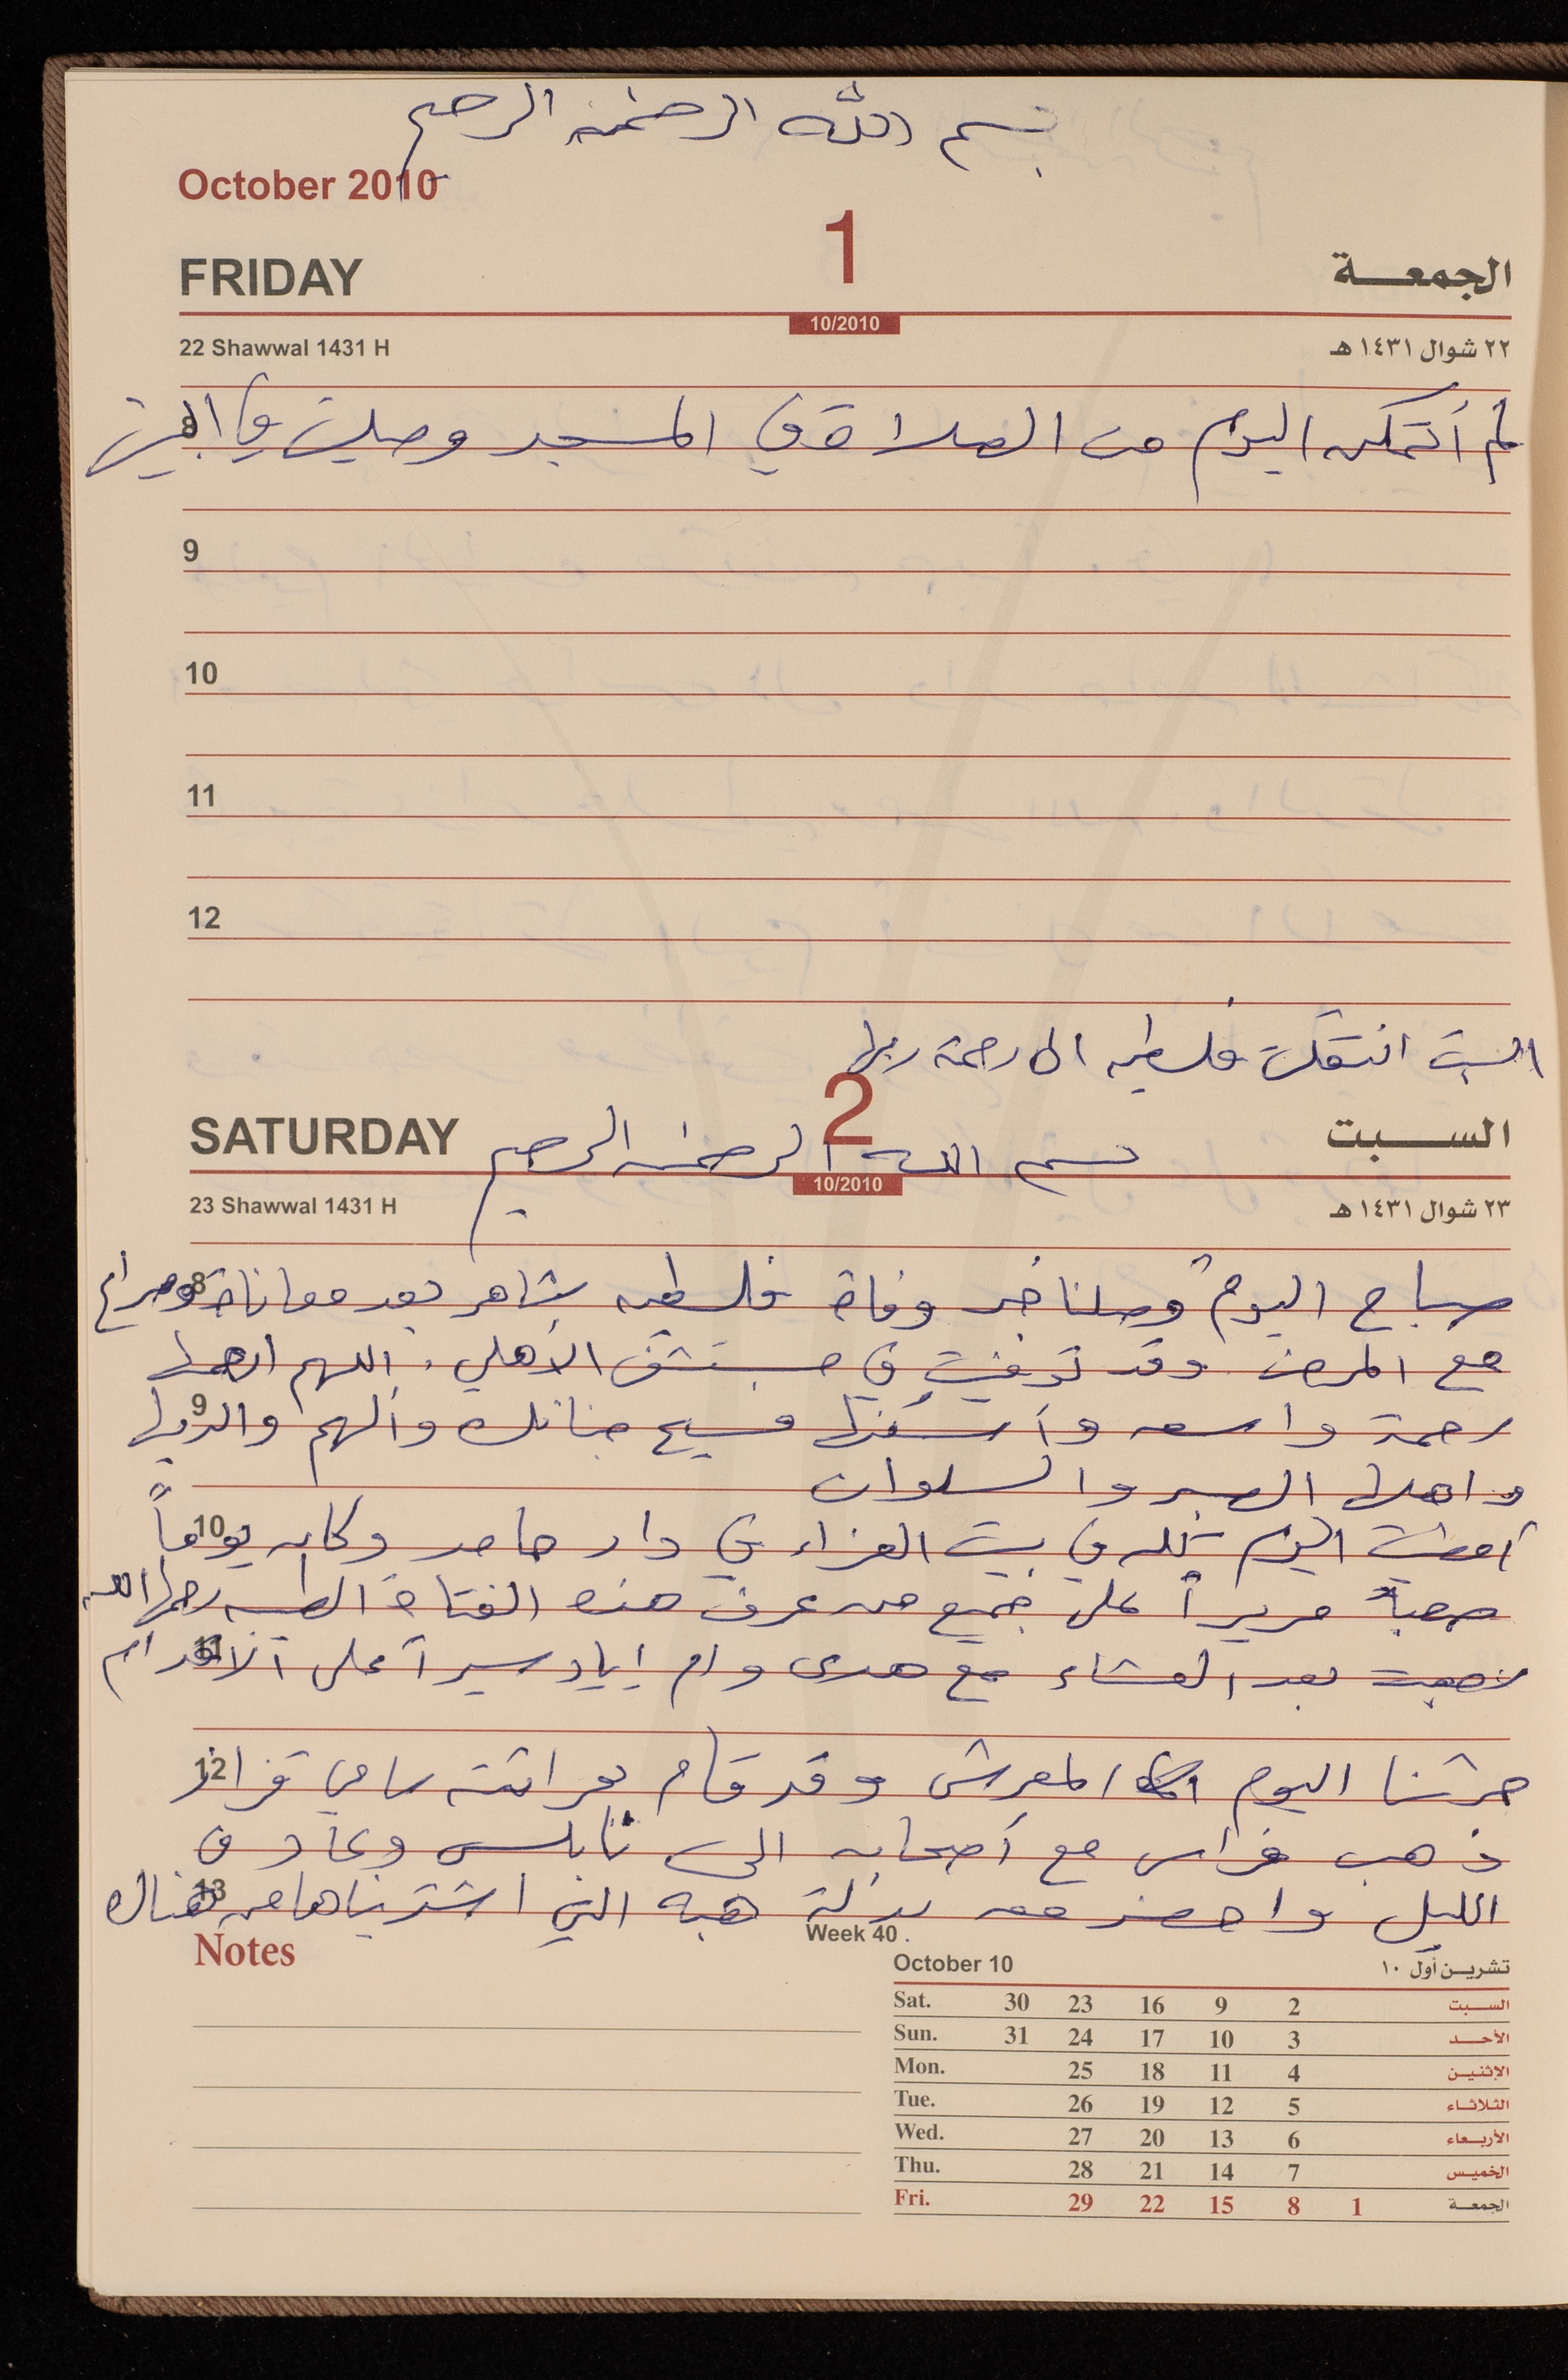 بسم الله الرحمن الرحيم
October 2010
FRIDAY 1 الجمعـــة
10/2010
22 Shawwal 1431 H ٢٢ شوال ١٤٣١ هـ
لم أتمكن اليوم من الصلاة في المسجد وصليت في البيت
8
9
10
11
12
السبت انتقلت فلسطين الى رحمة ربها
SATURDAY 2 الســـبت
بسم الله الرحمن الرحيم
10/2010
23 Shawwal 1431 H ٢٣ شوال ١٤٣١ هـ
8 صباح اليوم وصلنا خبر وفاة فلسطين شاهر بعد معاناة وصراع
مع المرض وقد توفيت في مستشفى الأهلي. اللهم ارحمها
9 رحمة واسعه وأسكنها فسيح جنانك وألهم والديها
واهلها الصبر والسلوان
10 أمضيت اليوم كله في بيت العزاء في دار حامد وكان يوماً
صعباً مريراً على جميع من عرف هذه الفتاة الطيبه رحمها الله
11 بعد العشاء مع هدى وام اياد سيراً على الأقدام
12 حرثنا اليوم المعرش وقد قام بحراثته سامي قزاز
ذهب فراس مع أصحابه الى نابلس وعاد في
13 الليل واحضر معه بدلة هبه التي اشتريناها من هناك
Notes
Week 40 .
October 10 تشريـن أول ١٠
Sat. 30 23 16 9 2 الســبت
Sun. 31 24 17 10 3 الأحــد
Mon. 25 18 11 4 الإثنيـن
Tue. 26 19 12 5 الثـلاثـاء
Wed. 27 20 13 6 الأربـعاء
Thu. 28 21 14 7 الخميـس
Fri. 29 22 15 8 1 الجمعـة